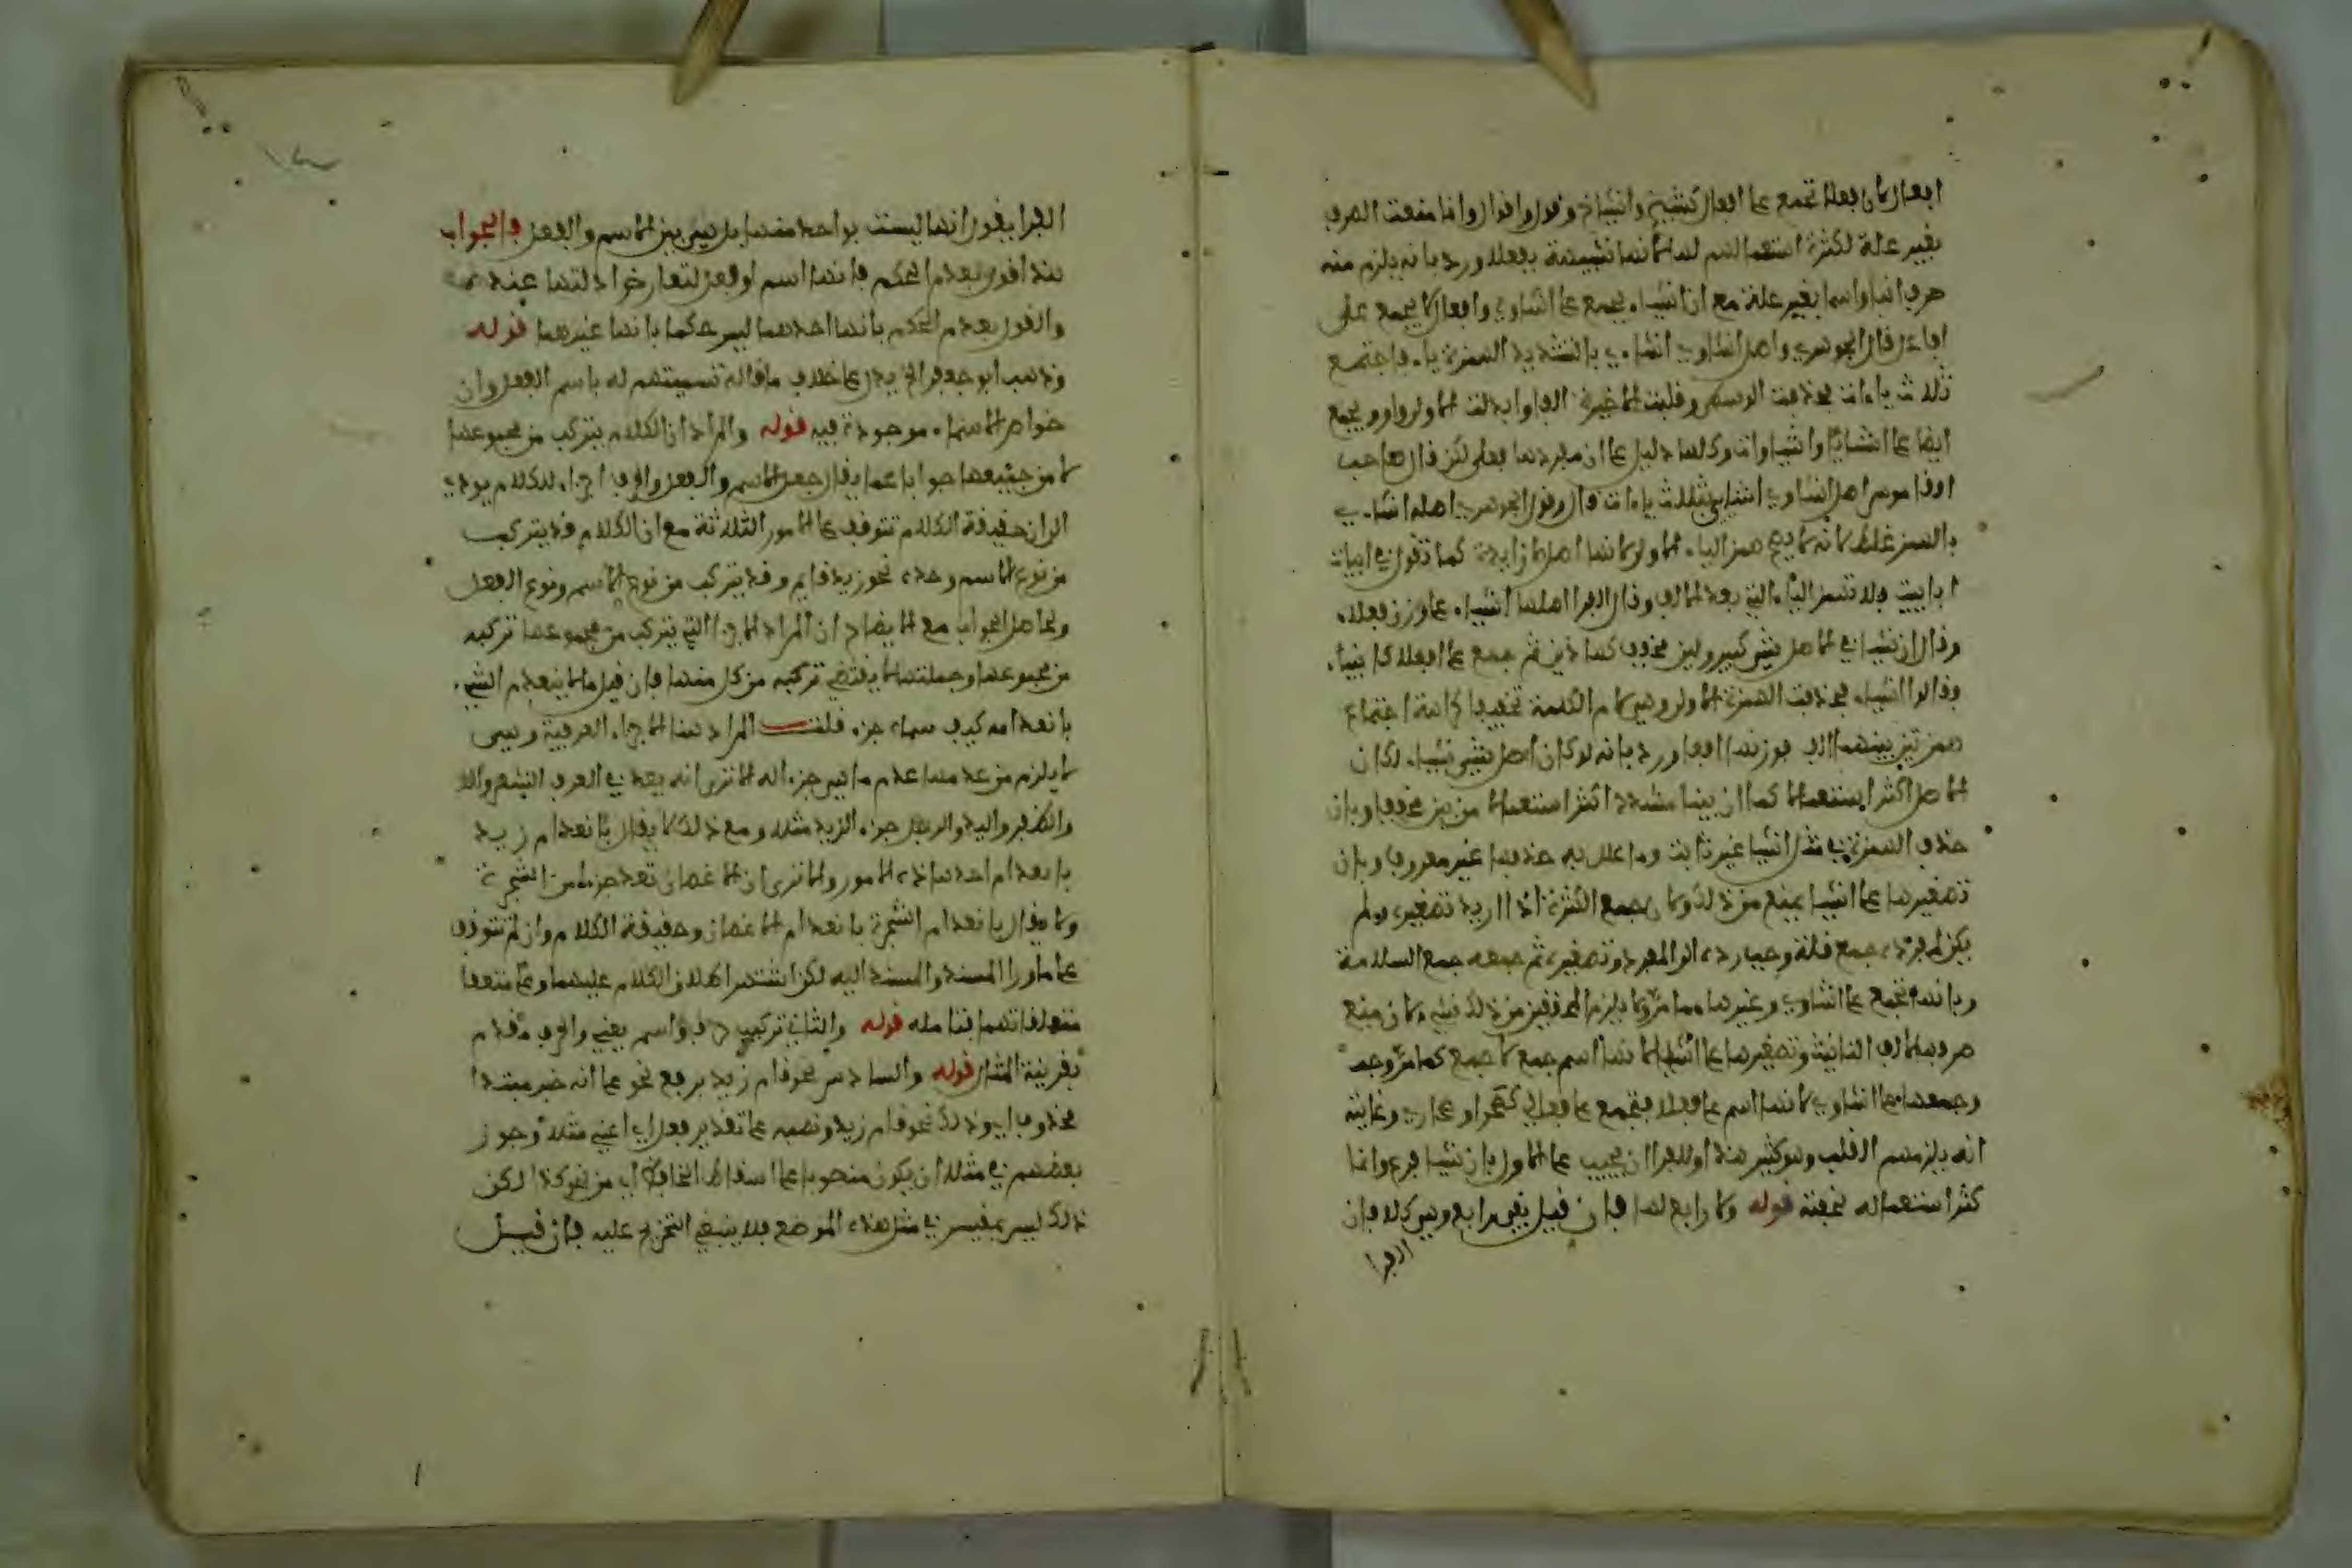 افعال لان فعلا تجمع على افعال كشيخ واشياخ وقول واقوال وانما منعت الصرف
بغير علة لكثرة استعمالهم لها لانها شبيهة بفعلاء ورد بانه يلزم منه
صرف ابناء واسماء بغير علة مع ان اشياء يجمع على اشاوى وافعال لا يجمع على
افاعل قال الجوهري واصل اشاوي اشاءي بالتشديد الهمزة ياء فاجتمع
ثلاث ياءات فحذفت الوسطى وقلبت الاخيرة الفا وابدلت الاولى واوا ويجمع
ايضا على اشايا واشياوات وكلها دليل على ان مفردها فعلى لكن قال صاحب
القاموس اصل اشاوي اشايي بثلاث ياءات قال وقول الجوهري اصله اشاءي
بالهمز غلط لانه لا يصح همز الياء الاولى لانها اصل لا زايدة كما تقول في ابيات
ابابيت فلا تهمز الياء التي بعد الالف وقال الفرا اصلها اشيياء على وزن افعلاء
وقال ان شيئا في الاصل شيء كبير ولين مخفف كهاذين ثم جمع على افعلاء كابيناء
وقالوا اشيياء فحذفت الهمزة الاولى وهي لام الكلمة تخفيفا كراهة اجتماع
همزتين بينهما الف فوزنها افعا ورد بانه لو كان اصل شيء شييا لكان
الاصل اكثر استعمالا كما ان بينا مشددا اكثر استعمالا من بين مخففا وبان
حذف الهمزة في مثل اشيا غير ثابت وما علل به حذفها غير معروف وبان
تصغيرها على اشيا يمنع من ذلك لان جمع الكثرة اذا اريد تصغيره ولم
يكن لمفرده جمع قلة وجب رده الى المفرد وتصغيره ثم جمعه جمع السلامة
وبانها تجمع على اشاوي وغيرها مما مر ولا يلزم المحققين من ذلك شيء لان منع
صرفها لالف التانيث وتصغيرها على اشيا لانها اسم جمع لا جمع كما مر وجه
وجمعها على اشاوي لانها اسم على فعلاء فتجمع على فعالي كصحرا وصحاري وغايته
انه يلزمهم القلب وهو كثير هذا وللفرا ان يجيب على الاول بان شيا فرع وانما
كثر استعماله لخفته قوله ولا رابع لها فان قيل بقي رابع وهي كلا فان
الفرا
الفرا يقول انها ليست بواحد منها بل هي بين الاسم والفعل فالجواب
هذا قول بعدم الحكم بانها اسم او فعل لتعارض ادلتها عنده
والقول بعدم الحكم بانها احدهما ليس حكما بانها غيرهما قوله
وذهب ابو جعفر الخ يدل على خلاف ما قاله تسميتهم له باسم الفعل وان
خواص الاسماء موجودة فيه قوله والمراد ان الكلام يتركب من مجموعها
لا من جميعها جوابا عما يقال جعل الاسم والفعل والحرف اجزاء للكلام يودي
الى ان حقيقة الكلام تتوقف على الامور الثلاثة مع ان الكلام قد يتركب
من نوع الاسم وحده نحو زيد قايم وقد يتركب من نوع الاسم ونوع الفعل
وحاصل الجواب مع الايضاح ان المراد الاجزا التي يتركب من مجموعها تركبه
من مجموعها وجملتها لا يقتضي تركبه من كل منها فان قيل مالا ينعدم الشيء
بانعدامه كيف سماه جزء قلت المراد هنا الاجزاء العرفية وهي
لا يلزم من عدمها عدم ما هي جزء له الا ترى انه يعد في العرف الشعر والا
والظفر واليد والرجل جزء الزيد مثلا ومع ذلك لا يقال بانعدام زيد
بانعدام احد هاذه الامور والا ترى ان الاغصان تعد جزءا من الشجرة
ولا يقال بانعدام الشجرة بانعدام الاغصان وحقيقة الكلام وان لم تتوقف
على ما ورا المسند والمسند اليه لكن اشتهر اطلاق الكلام عليهما وعلى متعلقا
متعلقاتهما فتامله قوله والثاني تركيب حرف واسم يعني والحرف مقدم
بقرينة المثال قوله والسادس نحو قام زيد برفع نحو على انه خبر مبتدا
محذوف اي وذلك نحو قام زيد ونصبه على تقدير فعل اي اعني مثلا وجوز
بعضهم في مثله ان يكون منصوبا على اسقاط الخافض اي من نحو كذا لكن
ذلك ليس بمقيس في مثل هذه الموضع فلا ينبغي التخريج عليه فان قيل